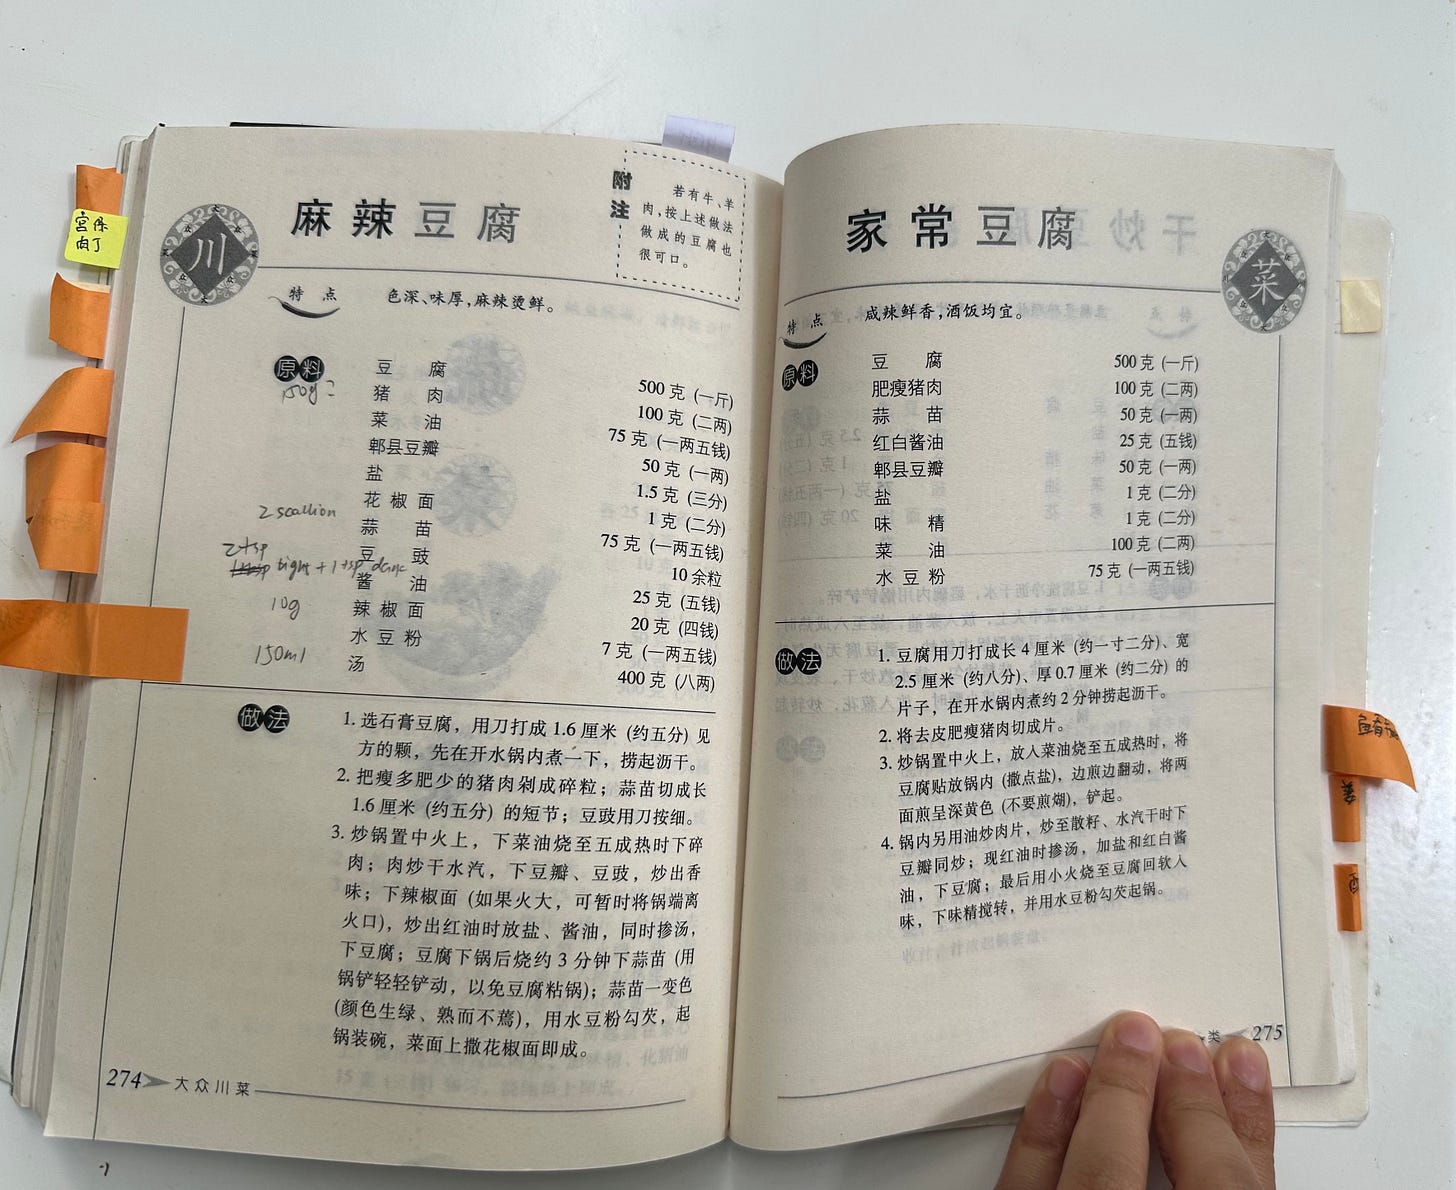 宫保
肉丁
川
麻辣豆腐
附注
若有牛、羊
肉,按上述做法
做成的豆腐也
很可口。
特点 色深、味厚,麻辣烫鲜。
原料
150g?
豆腐 500克 (一斤)
猪肉 100克 (二两)
菜油 75克 (一两五钱)
郫县豆瓣 50克 (一两)
盐 1.5克 (三分)
花椒面 1克 (二分)
2 scallion
蒜苗 75克 (一两五钱)
豆豉 10余粒
2 tsp
light + 1 tsp dark
酱油 25克 (五钱)
10g
辣椒面 20克 (四钱)
水豆粉 7克 (一两五钱)
150ml
汤 400克 (八两)
做法
1. 选石膏豆腐，用刀打成 1.6 厘米 (约五分) 见
方的颗，先在开水锅内煮一下，捞起沥干。
2. 把瘦多肥少的猪肉剁成碎粒；蒜苗切成长
1.6 厘米 (约五分) 的短节；豆豉用刀按细。
3. 炒锅置中火上，下菜油烧至五成热时下碎
肉；肉炒干水汽，下豆瓣、豆豉，炒出香
味；下辣椒面 (如果火大，可暂时将锅端离
火口)，炒出红油时放盐、酱油，同时掺汤，
下豆腐；豆腐下锅后烧约 3 分钟下蒜苗 (用
锅铲轻轻铲动，以免豆腐粘锅)；蒜苗一变色
(颜色生绿、熟而不蔫)，用水豆粉勾芡，起
锅装碗，菜面上撒花椒面即成。
274 大众川菜
家常豆腐
菜
特点 咸辣鲜香,酒饭均宜。
原料
豆腐 500克 (一斤)
肥瘦猪肉 100克 (二两)
蒜苗 50克 (一两)
红白酱油 25克 (五钱)
郫县豆瓣 50克 (一两)
盐 1克 (二分)
味精 1克 (二分)
菜油 100克 (二两)
水豆粉 75克 (一两五钱)
做法
1. 豆腐用刀打成长 4 厘米 (约一寸二分)、宽
2.5 厘米 (约八分)、厚 0.7 厘米 (约二分) 的
片子，在开水锅内煮约 2 分钟捞起沥干。
2. 将去皮肥瘦猪肉切成片。
3. 炒锅置中火上，放入菜油烧至五成热时，将
豆腐贴放锅内 (撒点盐)，边煎边翻动，将两
面煎呈深黄色 (不要煎煳)，铲起。
4. 锅内另用油炒肉片，炒至散籽、水汽干时下
豆瓣同炒；现红油时掺汤，加盐和红白酱
油，下豆腐；最后用小火烧至豆腐回软入
味，下味精搅转，并用水豆粉勾芡起锅。
类 275